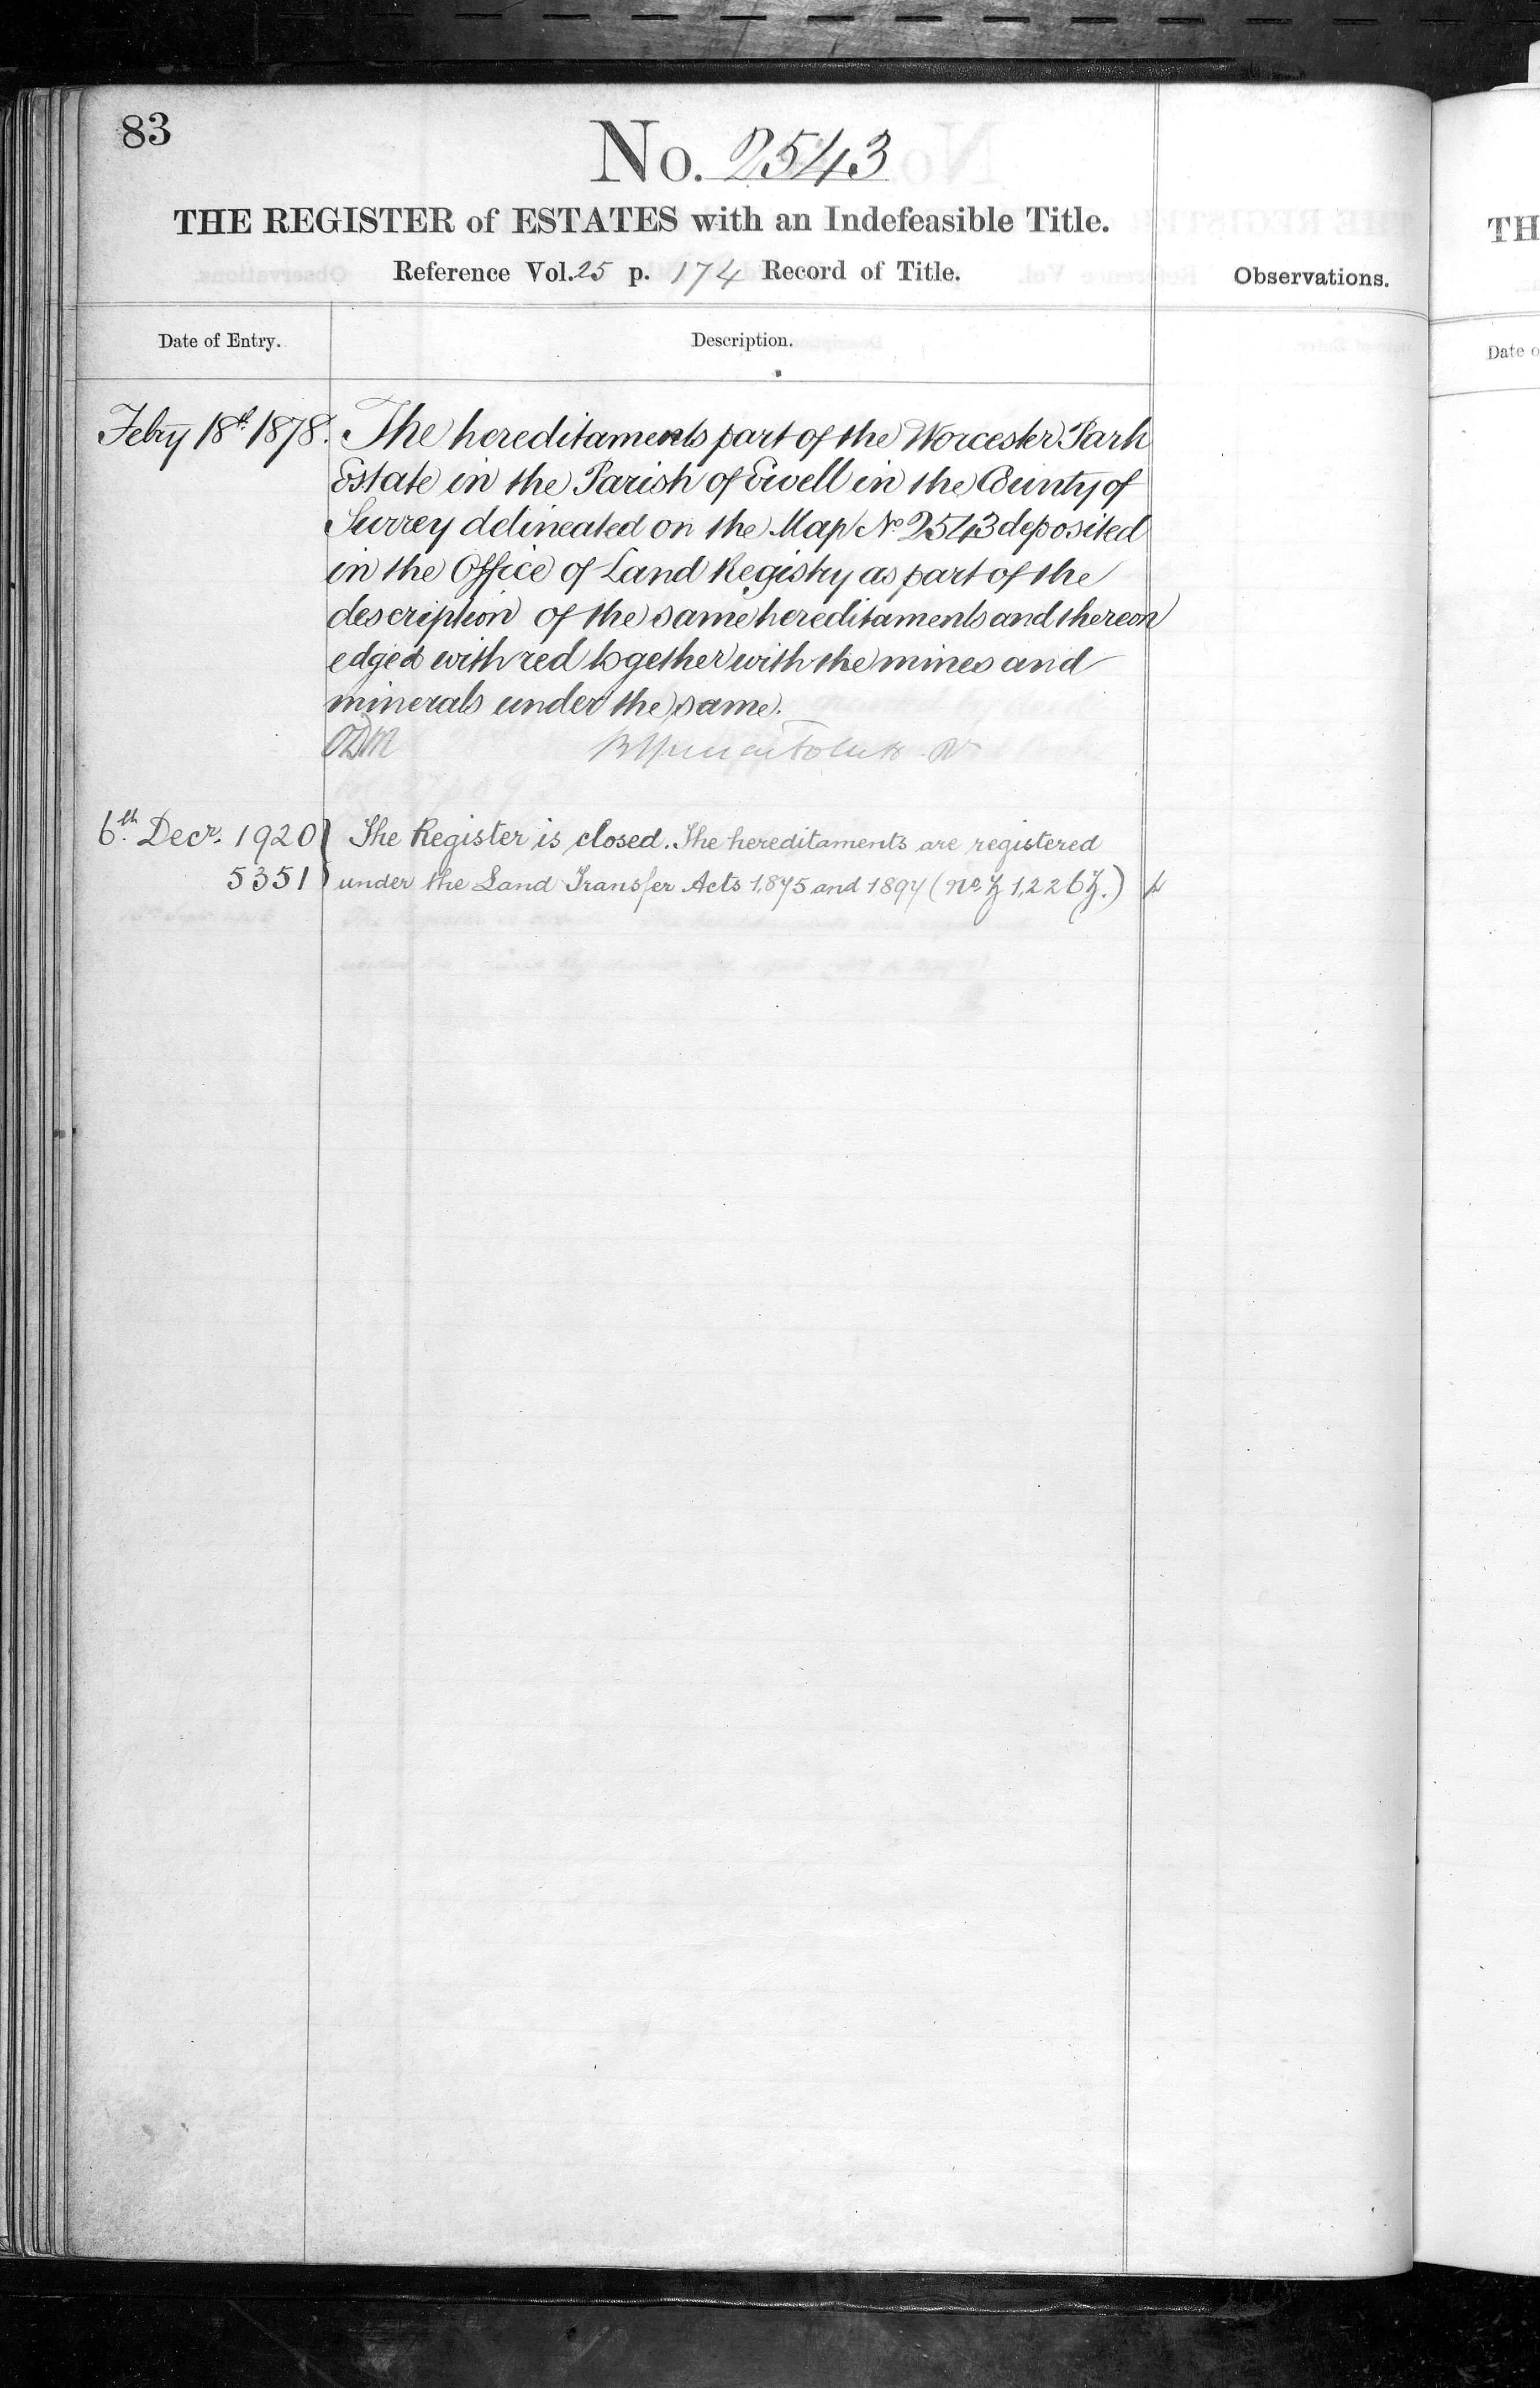 83
No. 2543
THE REGISTER of ESTATES with an Indefeasible Title.
Reference Vol. 25 p. 174 Record of Title.
Observations.
Date of Entry.
Description.
Febry 18th 1878. The hereditaments part of the Worcester Park
Estate in the Parish of Ewell in the County of
Surrey delineated on the Map No 2543 deposited
in the Office of Land Registry as part of the
description of the same hereditaments and thereon
edged with red together with the mines and
minerals under the same.
6th Decr. 1920 The Register is closed. The hereditaments are registered
5351 under the Land Transfer Acts 1875 and 1897
TH
Date o